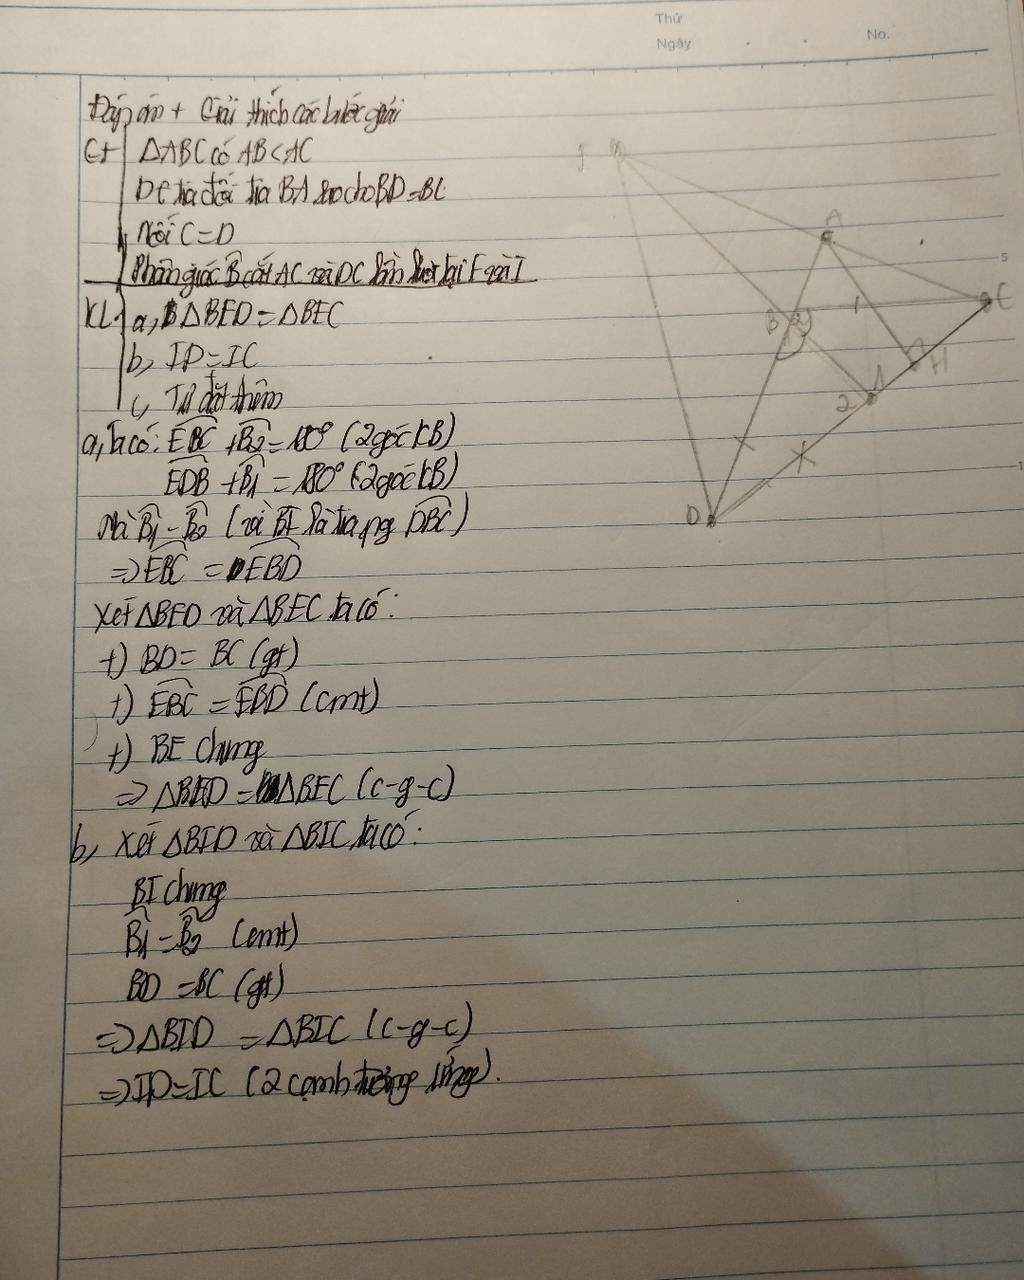 Thứ
Ngày . . No.
Đáp án + Giải thích các bước giải
Gt ΔABC có AB<AC
D∈ tia đối tia BA sao cho BD=BC
Nối C=D
Phân giác B̂ cắt AC và DC lần lượt tại E và I
KL a, ΔBED = ΔBEC
b, ID=IC
c, Tự đặt thêm
a, Ta có: EBC + B2 = 180° (2 góc KB)
EDB + B1 = 180° (2 góc KB)
Mà B1 = B2 (vì BI là tia pg DBC)
=> EBC = EBD
Xét ΔBED và ΔBEC ta có:
+) BD = BC (gt)
+) EBC = EBD (cmt)
+) BE chung
=> ΔBED = ΔBEC (c-g-c)
b, Xét ΔBID và ΔBIC ta có:
BI chung
B1 = B2 (cmt)
BD = BC (gt)
=> ΔBID = ΔBIC (c-g-c)
=> ID=IC (2 cạnh tương ứng).
A
5
C
B 2 1
1
H
2
D
1